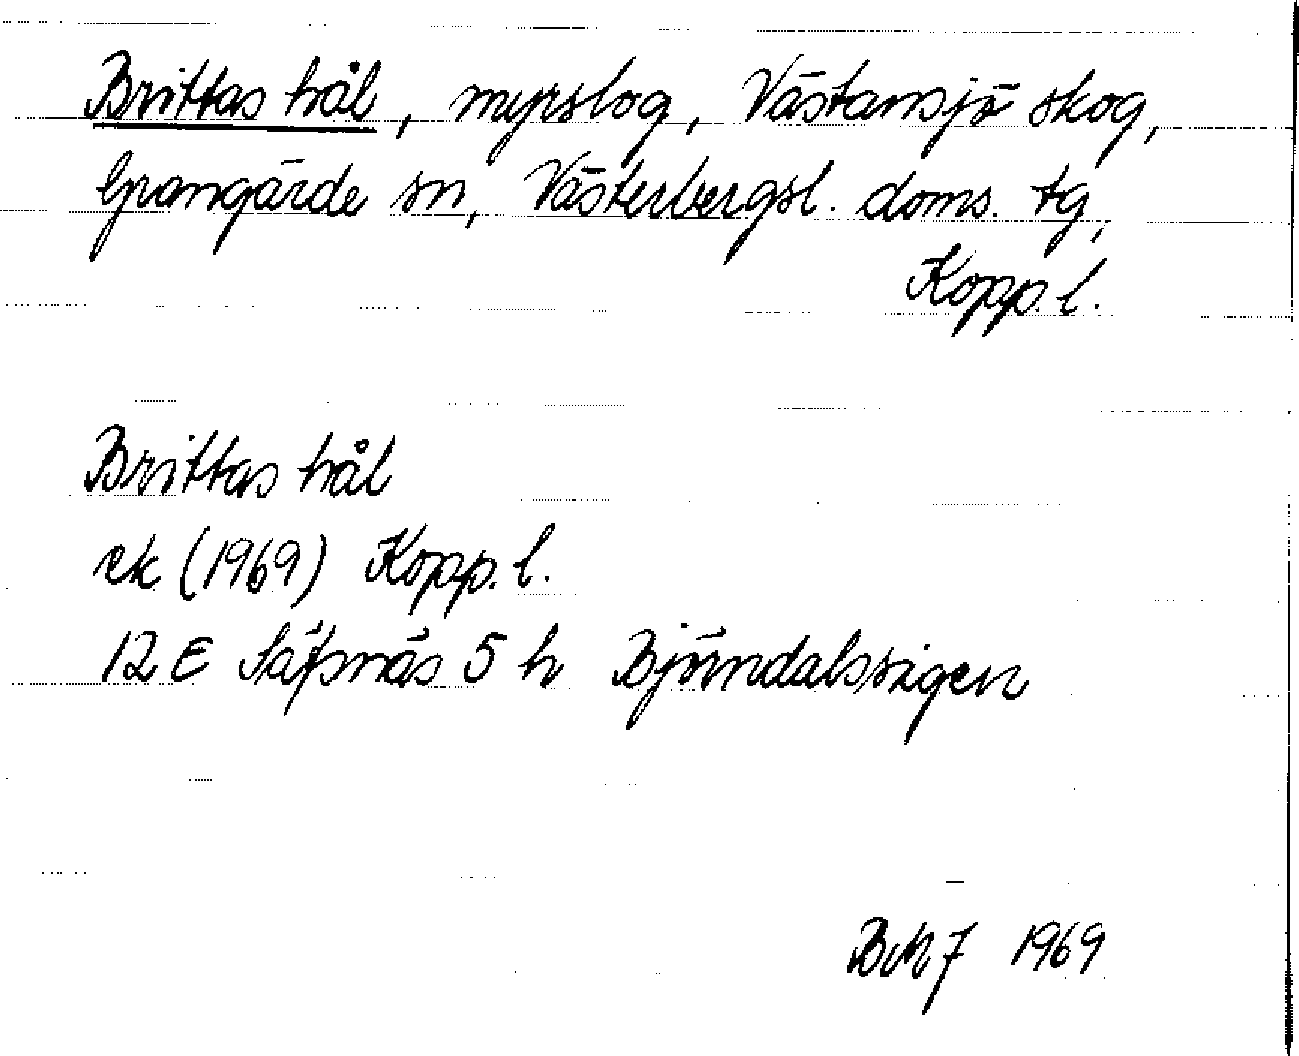 Brittas hål, myrslog, Västansjö skog,
Grangärde sn, Västerbergsl. doms. tg,
Kopp. l.
Brittas hål
ek (1969) Kopp. l.
12 E Säfsnäs 5 h Björndalssigen
1969